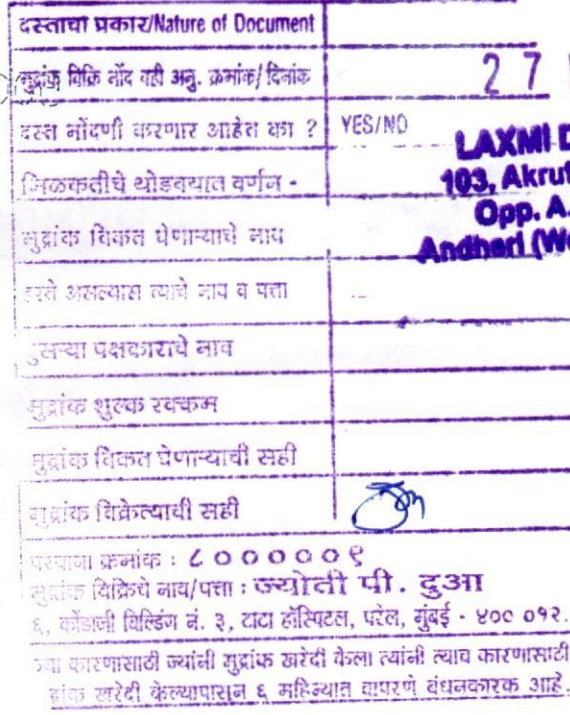 दस्ताचा प्रकार/Nature of Document
मुद्रांक विक्रि नोंद वही अनु. क्रमांक/दिनांक
27
दस्त नोंदणी करणार आहेत का ? YES/NO
LAXMI D
मिळकतीचे थोडक्यात वर्णन -
103, Akrut
Opp. A.
मुद्रांक विकत घेणाऱ्याचे नाव
Andheri (We
हस्ते असल्यास त्याचे नाव व पत्ता
दुसऱ्या पक्षकाराचे नाव
मुद्रांक शुल्क रक्कम
मुद्रांक विकत घेणाऱ्याची सही
मुद्रांक विक्रेत्याची सही
परवाना क्रमांक : ८००000९
मुद्रांक विक्रिचे नाव/पत्ता : ज्योती पी. दुआ
६, कोंडाजी बिल्डिंग नं. ३, टाटा हॉस्पिटल, परेल, मुंबई - ४०० ०१२.
ज्या कारणासाठी ज्यांनी मुद्रांक खरेदी केला त्यांनी त्याच कारणासाठी
मुद्रांक खरेदी केल्यापासून ६ महिन्यात वापरणे बंधनकारक आहे.